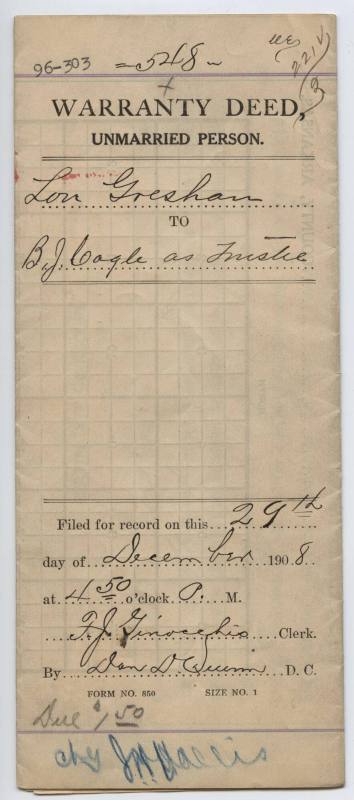 96-303 548
221V
3
WARRANTY DEED,
UNMARRIED PERSON.
Lon Gresham
TO
B.J. Cogle as Trustee
Filed for record on this 29th
day of December 1908
at 4 50 o'clock P. M.
F.J. Ginocchio Clerk.
By Dan D. Quinn D. C.
FORM NO. 850 SIZE NO. 1
Due $1.50
chg